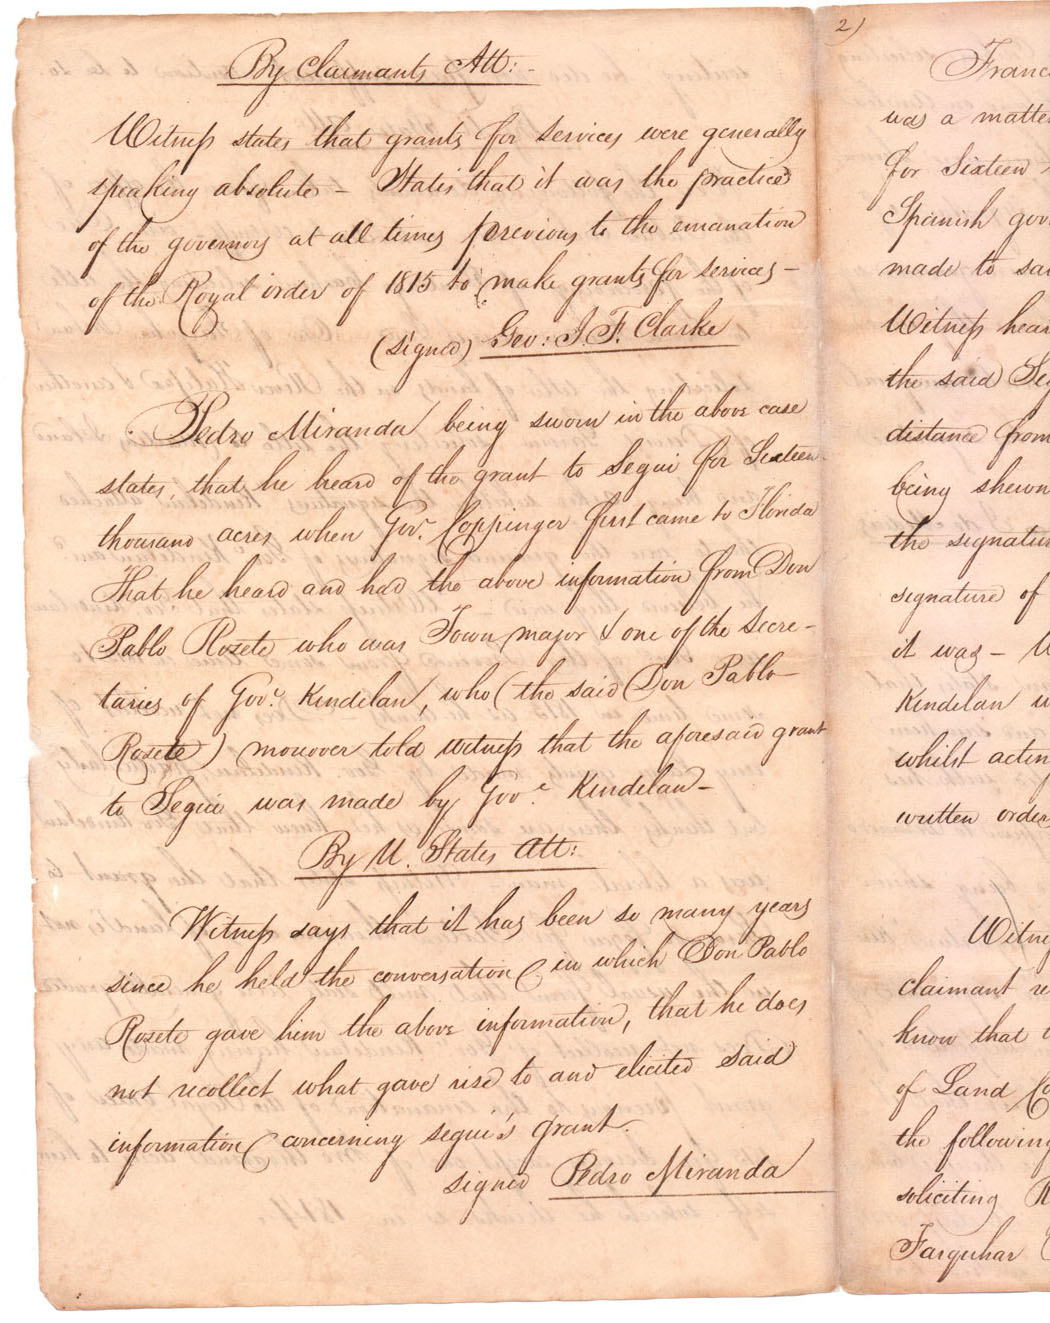 By Claimants Att:-
Witness states that grants for services were generally
speaking absolute - States that it was the practice
of the governors at all times previous to the emanation
of the Royal order of 1815 to make grants for services -
(signed) Geo: J. F. Clarke
Pedro Miranda being sworn in the above case
states, that he heard of the grant to Segui for Sixteen
thousand acres when Gov.r Coppinger first came to Florida
That he heard and had the above information from Don
Pablo Rozete who was Town major & one of the Secre-
taries of Gov.r Kindelan, who (the said Don Pablo
Rozete) moreover told witness that the aforesaid grant
to Segui was made by Gov.r Kindelan -
By U. States Att:
Witness says that it has been so many years
since he held the conversation in which Don Pablo
Rozete gave him the above information, that he does
not recollect what gave rise to and elicited said
information concerning Segui's grant.
signed Pedro Miranda
2)
Franc
was a matte
for Sixteen
Spanish gov
made to sai
Witness hear
the said Seg
distance from
being shewn
the signatur
signature of
it was - W
Kindelan w
whilst actin
written order
Witne
claimant re
know that
of Land Co
the following
soliciting R
Farquhar